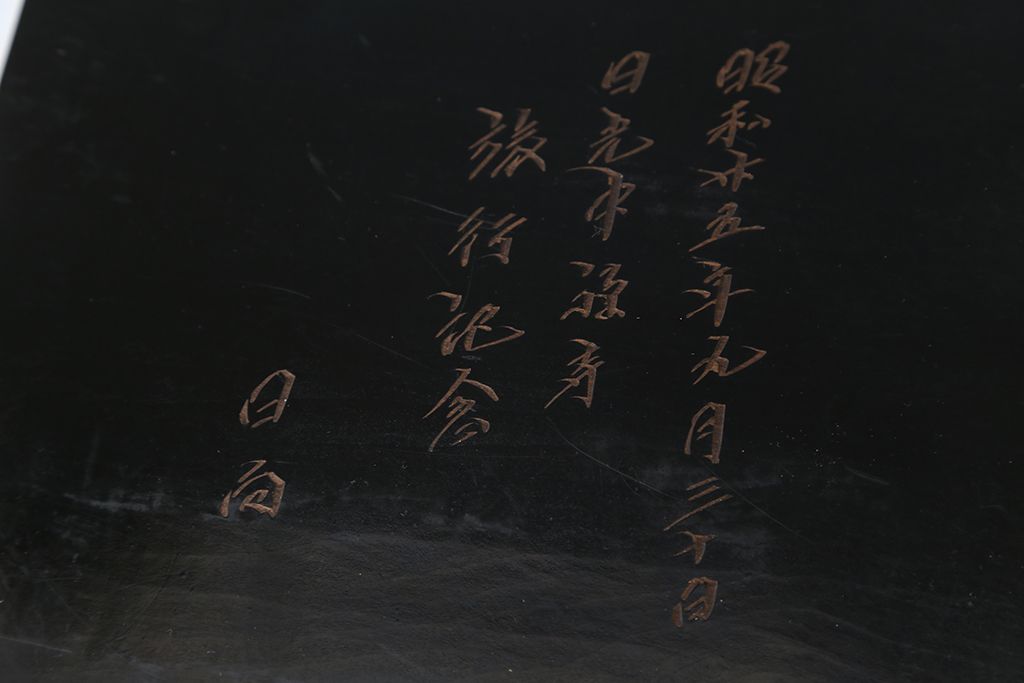 昭和廿五年九月三十日
日光中禅寺
旅行記念
日向